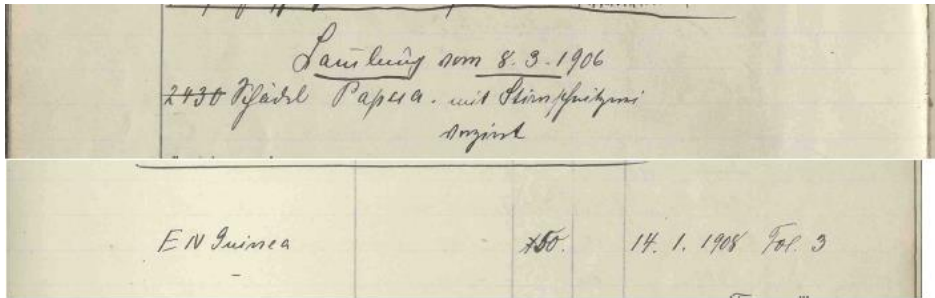 vom 8.3.1906
2430 Schädel Papua. mit Stirnschnitzerei
verziert
E N Guinea
150.
14. 1. 1908 Fol. 3